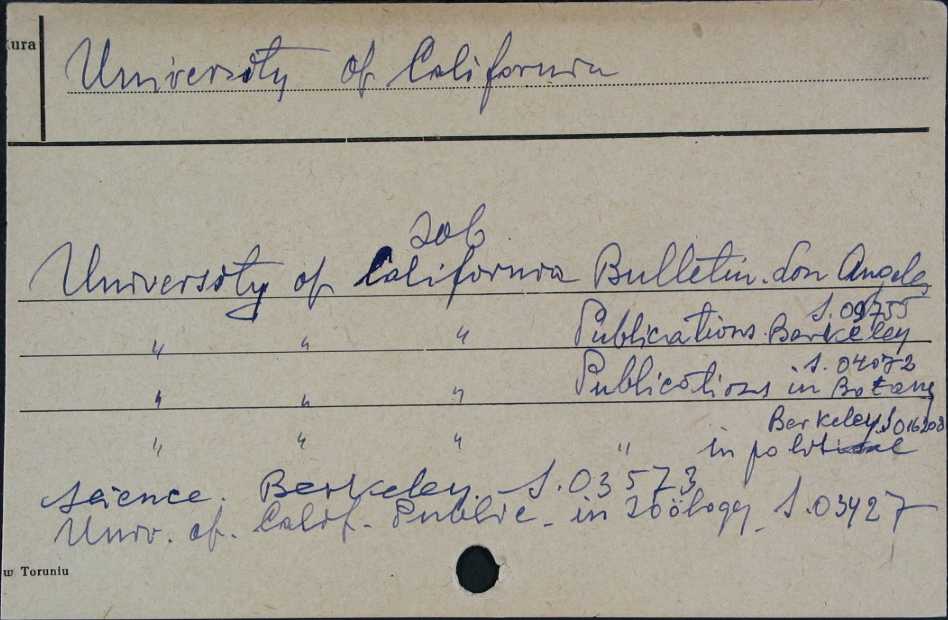 ura
University of California
zob
University of California Bulletin. Los Angeles
S. 09755
" " " Publications. Berkeley
S. 04072
" " " Publications in Botany
Berkeley S 016208
" " " " in political
science. Berkeley. S. 03573
Univ. of. Calif. Public. in Zoölogy S. 03427
w Toruniu